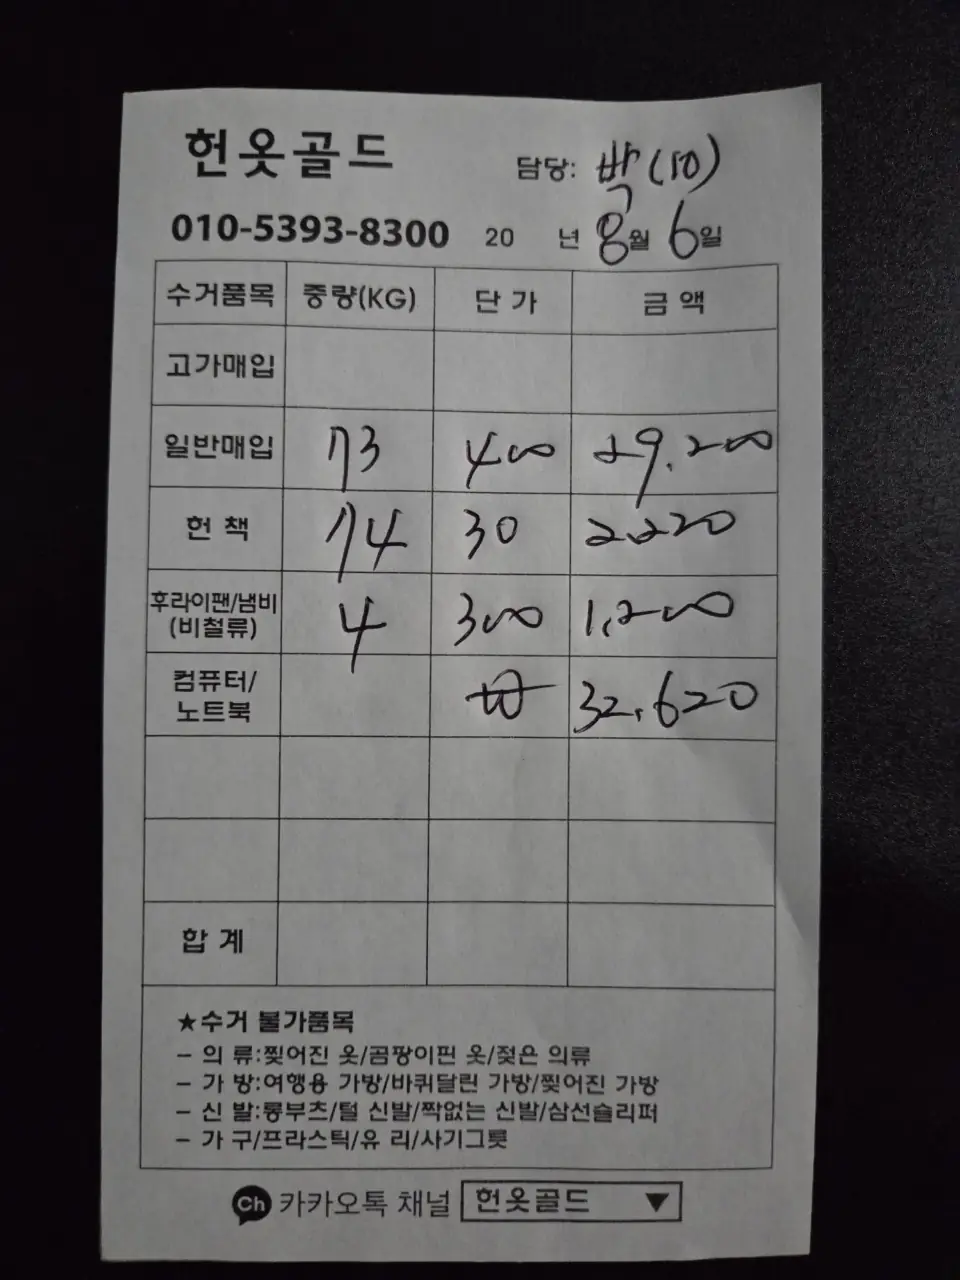 헌옷골드
담당: 박(10)
010-5393-8300 20 년 8월 6일
수거품목 중량(KG) 단가 금액
고가매입
일반매입 73 400 29,200
헌책 74 30 2,220
후라이팬/냄비
(비철류) 4 300 1,200
컴퓨터/
노트북 32,620
합계
★수거 불가품목
- 의 류:찢어진 옷/곰팡이핀 옷/젖은 의류
- 가 방:여행용 가방/바퀴달린 가방/찢어진 가방
- 신 발:롱부츠/털 신발/짝없는 신발/삼선슬리퍼
- 가 구/프라스틱/유 리/사기그릇
Ch 카카오톡 채널 헌옷골드 ▼